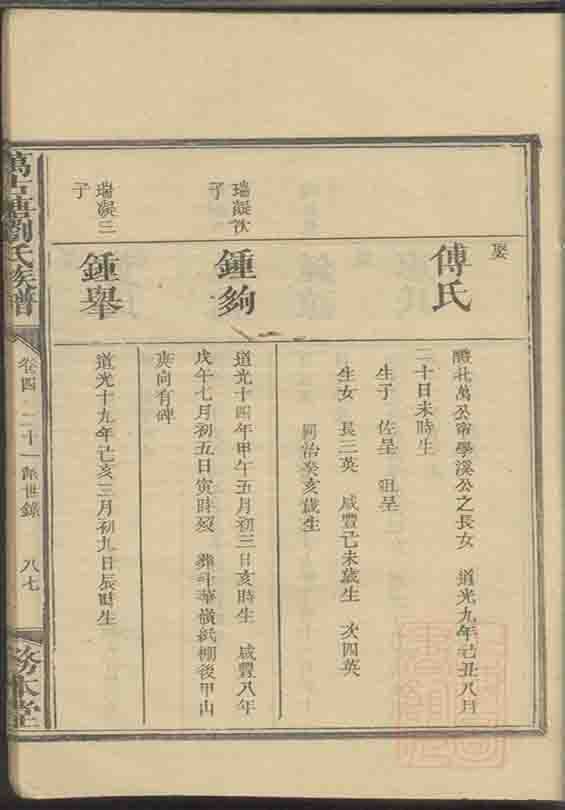 娶
傅氏
醴北萬公甯學溪公之長女 道光九年己丑八月
二十日未時生
生子 佐呈 祖呈
生女 長三英 咸豐己未歲生 次四英
同治癸亥歲生
瑞凝次
子
鍾夠
道光十四年甲午五月初三日亥時生 咸豐八年
戊午七月初五日寅時歿 葬斗華嶺紙棚後甲山
庚向有碑
瑞凝三
子
鍾舉
道光十九年己亥三月初九日辰時生
萬古塘劉氏族譜
卷四 二十一派世錄
八七
務本堂